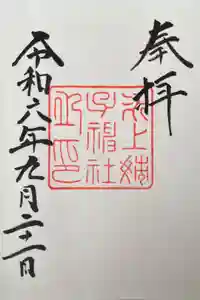 奉拝
氷上姉
子神社
之印
令和六年九月二十一日